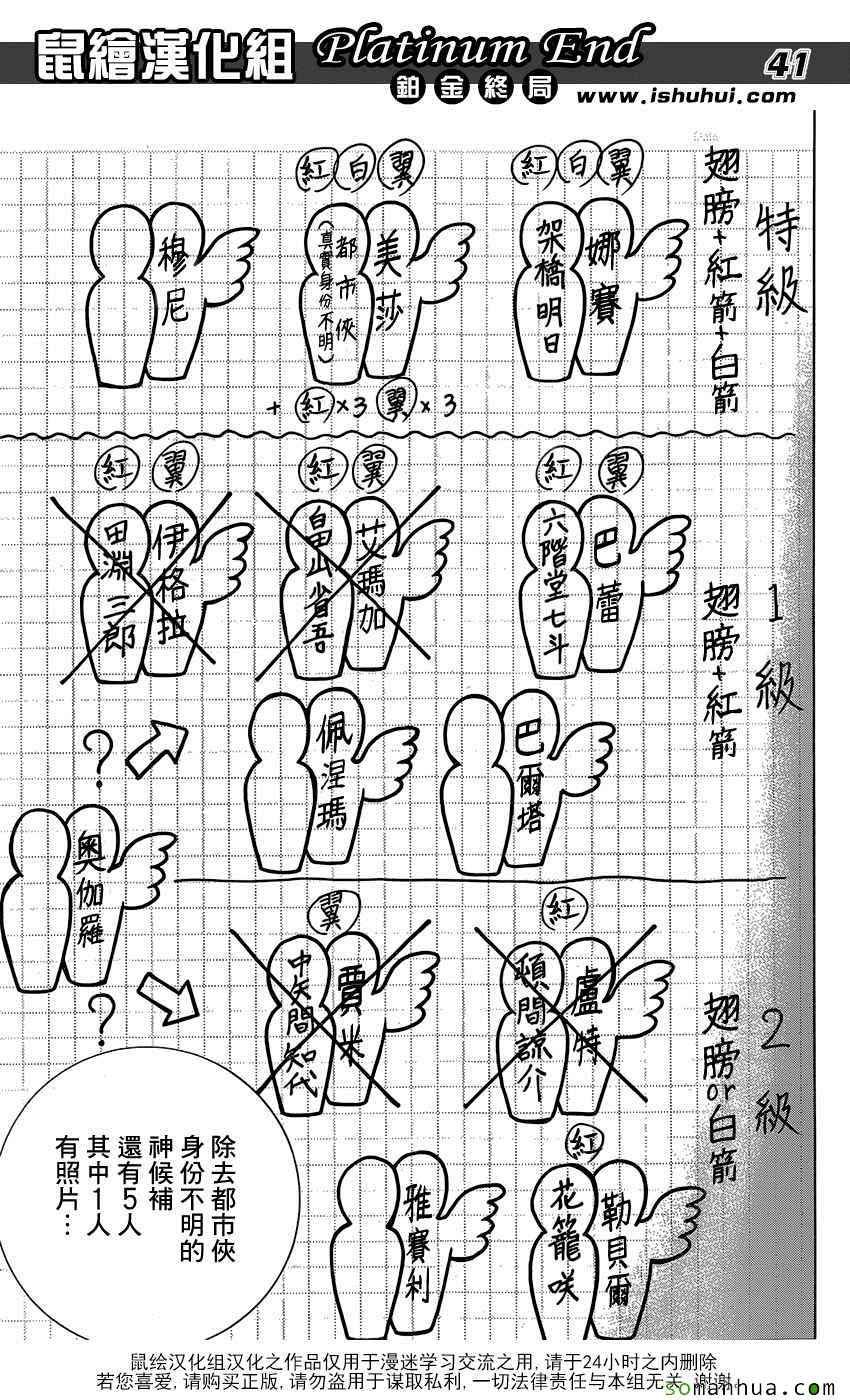 鼠繪漢化組 Platinum End 41
鉑金終局 www.ishuhui.com
特級
翅膀+紅箭+白箭
紅白翼
娜賽
架橋明日
紅白翼
美莎
都市俠
(真實身份不明)
+紅×3 翼×3
穆尼
1級
翅膀+紅箭
紅翼
巴蕾
六階堂七斗
紅翼
艾瑪加
畠山省吾
紅翼
伊格拉
田淵三郎
巴爾塔
佩涅瑪
?
奧伽羅
?
2級
翅膀or白箭
紅
盧特
頓間諒介
翼
賈米
中矢間知代
紅
勒貝爾
花籠咲
雅賽利
除去都市俠
身份不明的
神候補
還有5人
其中1人
有照片…
鼠绘汉化组汉化之作品仅用于漫迷学习交流之用,请于24小时之内删除
若您喜爱,请购买正版,请勿盗用于谋取私利,一切法律责任与本组无关,谢谢.
somanhua.com